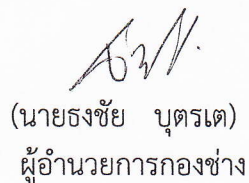 (นายธงชัย บุตรเต)
ผู้อำนวยการกองช่าง